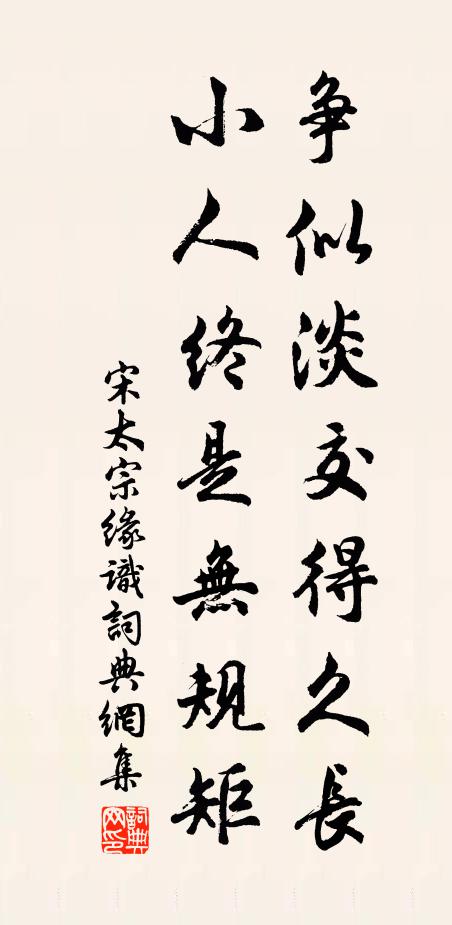 争似淡交得久長
小人終是無規矩
宋太宗緣識詞典網集
詞典
网印